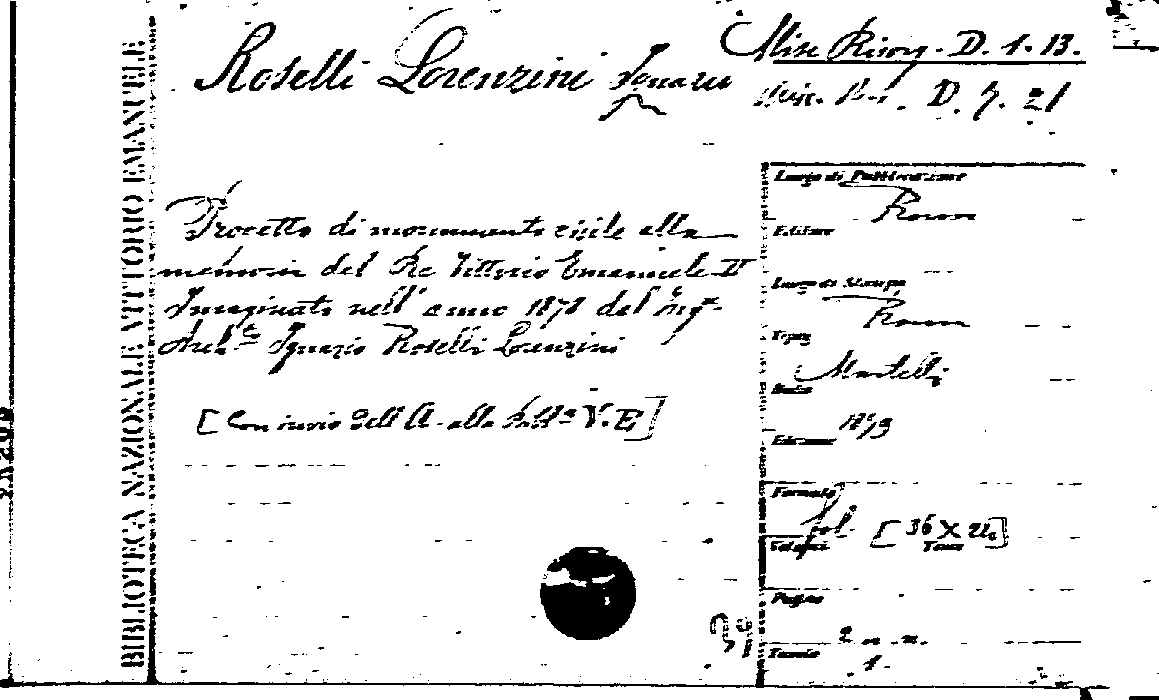 Roselli Lorenzini Ignazio
Misc. Risorg. D. 1. 13.
Misc. Ris. D. 7. 21
BIBLIOTECA NAZIONALE VITTORIO EMANUELE
Progetto di monumento civile alla
memoria del Re Vittorio Emanuele II
Imaginato nell'anno 1878 dal Ing.
Arch. Ignazio Roselli Lorenzini
[Con invio dell'A. alla V. E.]
Luogo di Pubblicazione
Roma
Editore
Luogo di Stampa
Roma
Tipog.
Martelli
Data
Edizione
Formato
fol. [36 X
Volumi Tomo
Pagine
2 n. n.
Tavole
1.